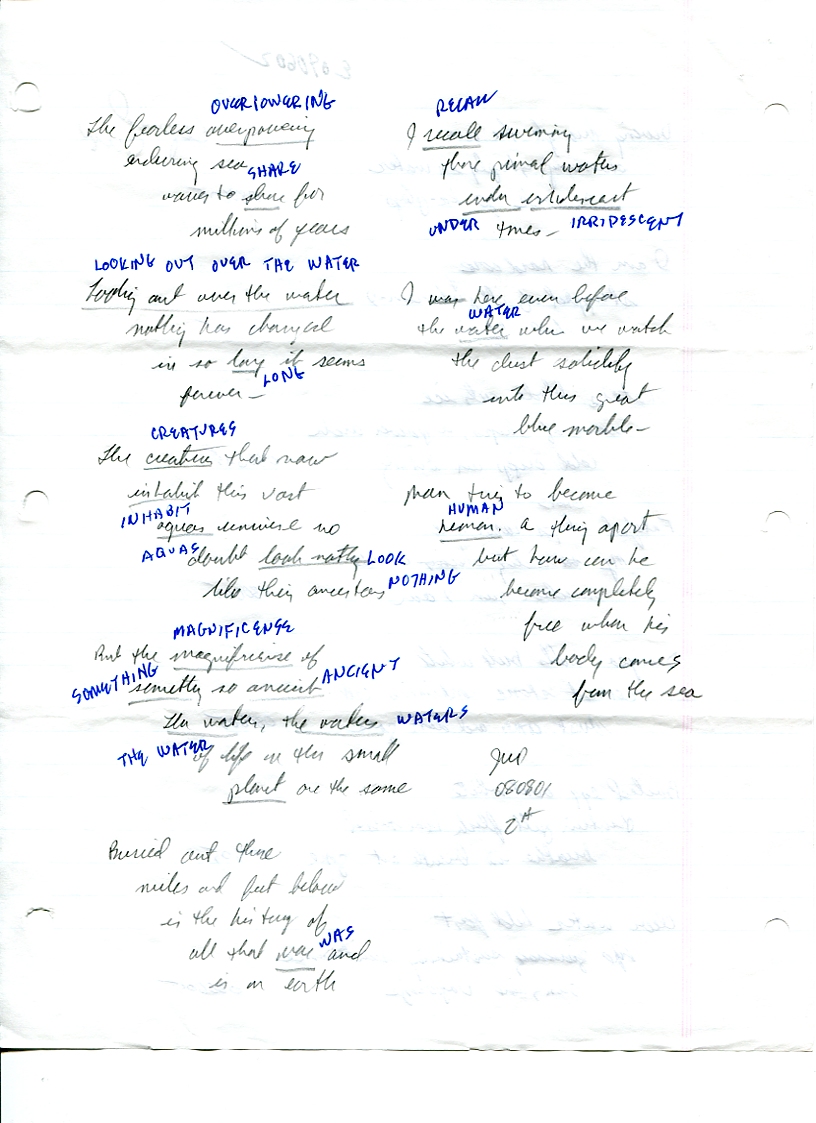 OVERIOWERING
The fearless overpowering
enduring sea
SHARE
waves to share for
millions of years
LOOKING OUT OVER THE WATER
Looking out over the water
nothing has changed
in so long it seems
LONG
forever –
CREATURES
The creatures that now
inhabit this vast
INHABIT
aquas universe no
AQUAS
doubt look nothing LOOK
like their ancestors NOTHING
MAGNIFICENSE
But the magnificense of
SOMETHING
something so ancient ANCIENT
The water, the waters WATERS
THE WATER
of life on this small
planet are the same
Buried out there
miles and feet below
is the history of
WAS
all that was and
is on earth
RECALL
I recall swimming
those primal waters
under
UNDER times – IRRIDESCENT
I was here even before
WATER
the water when we watch
the dust solidify
into this great
blue marble –
Man try to become
HUMAN
human. a thing apart
but how can he
become completely
free when his
body comes
from the sea
080801